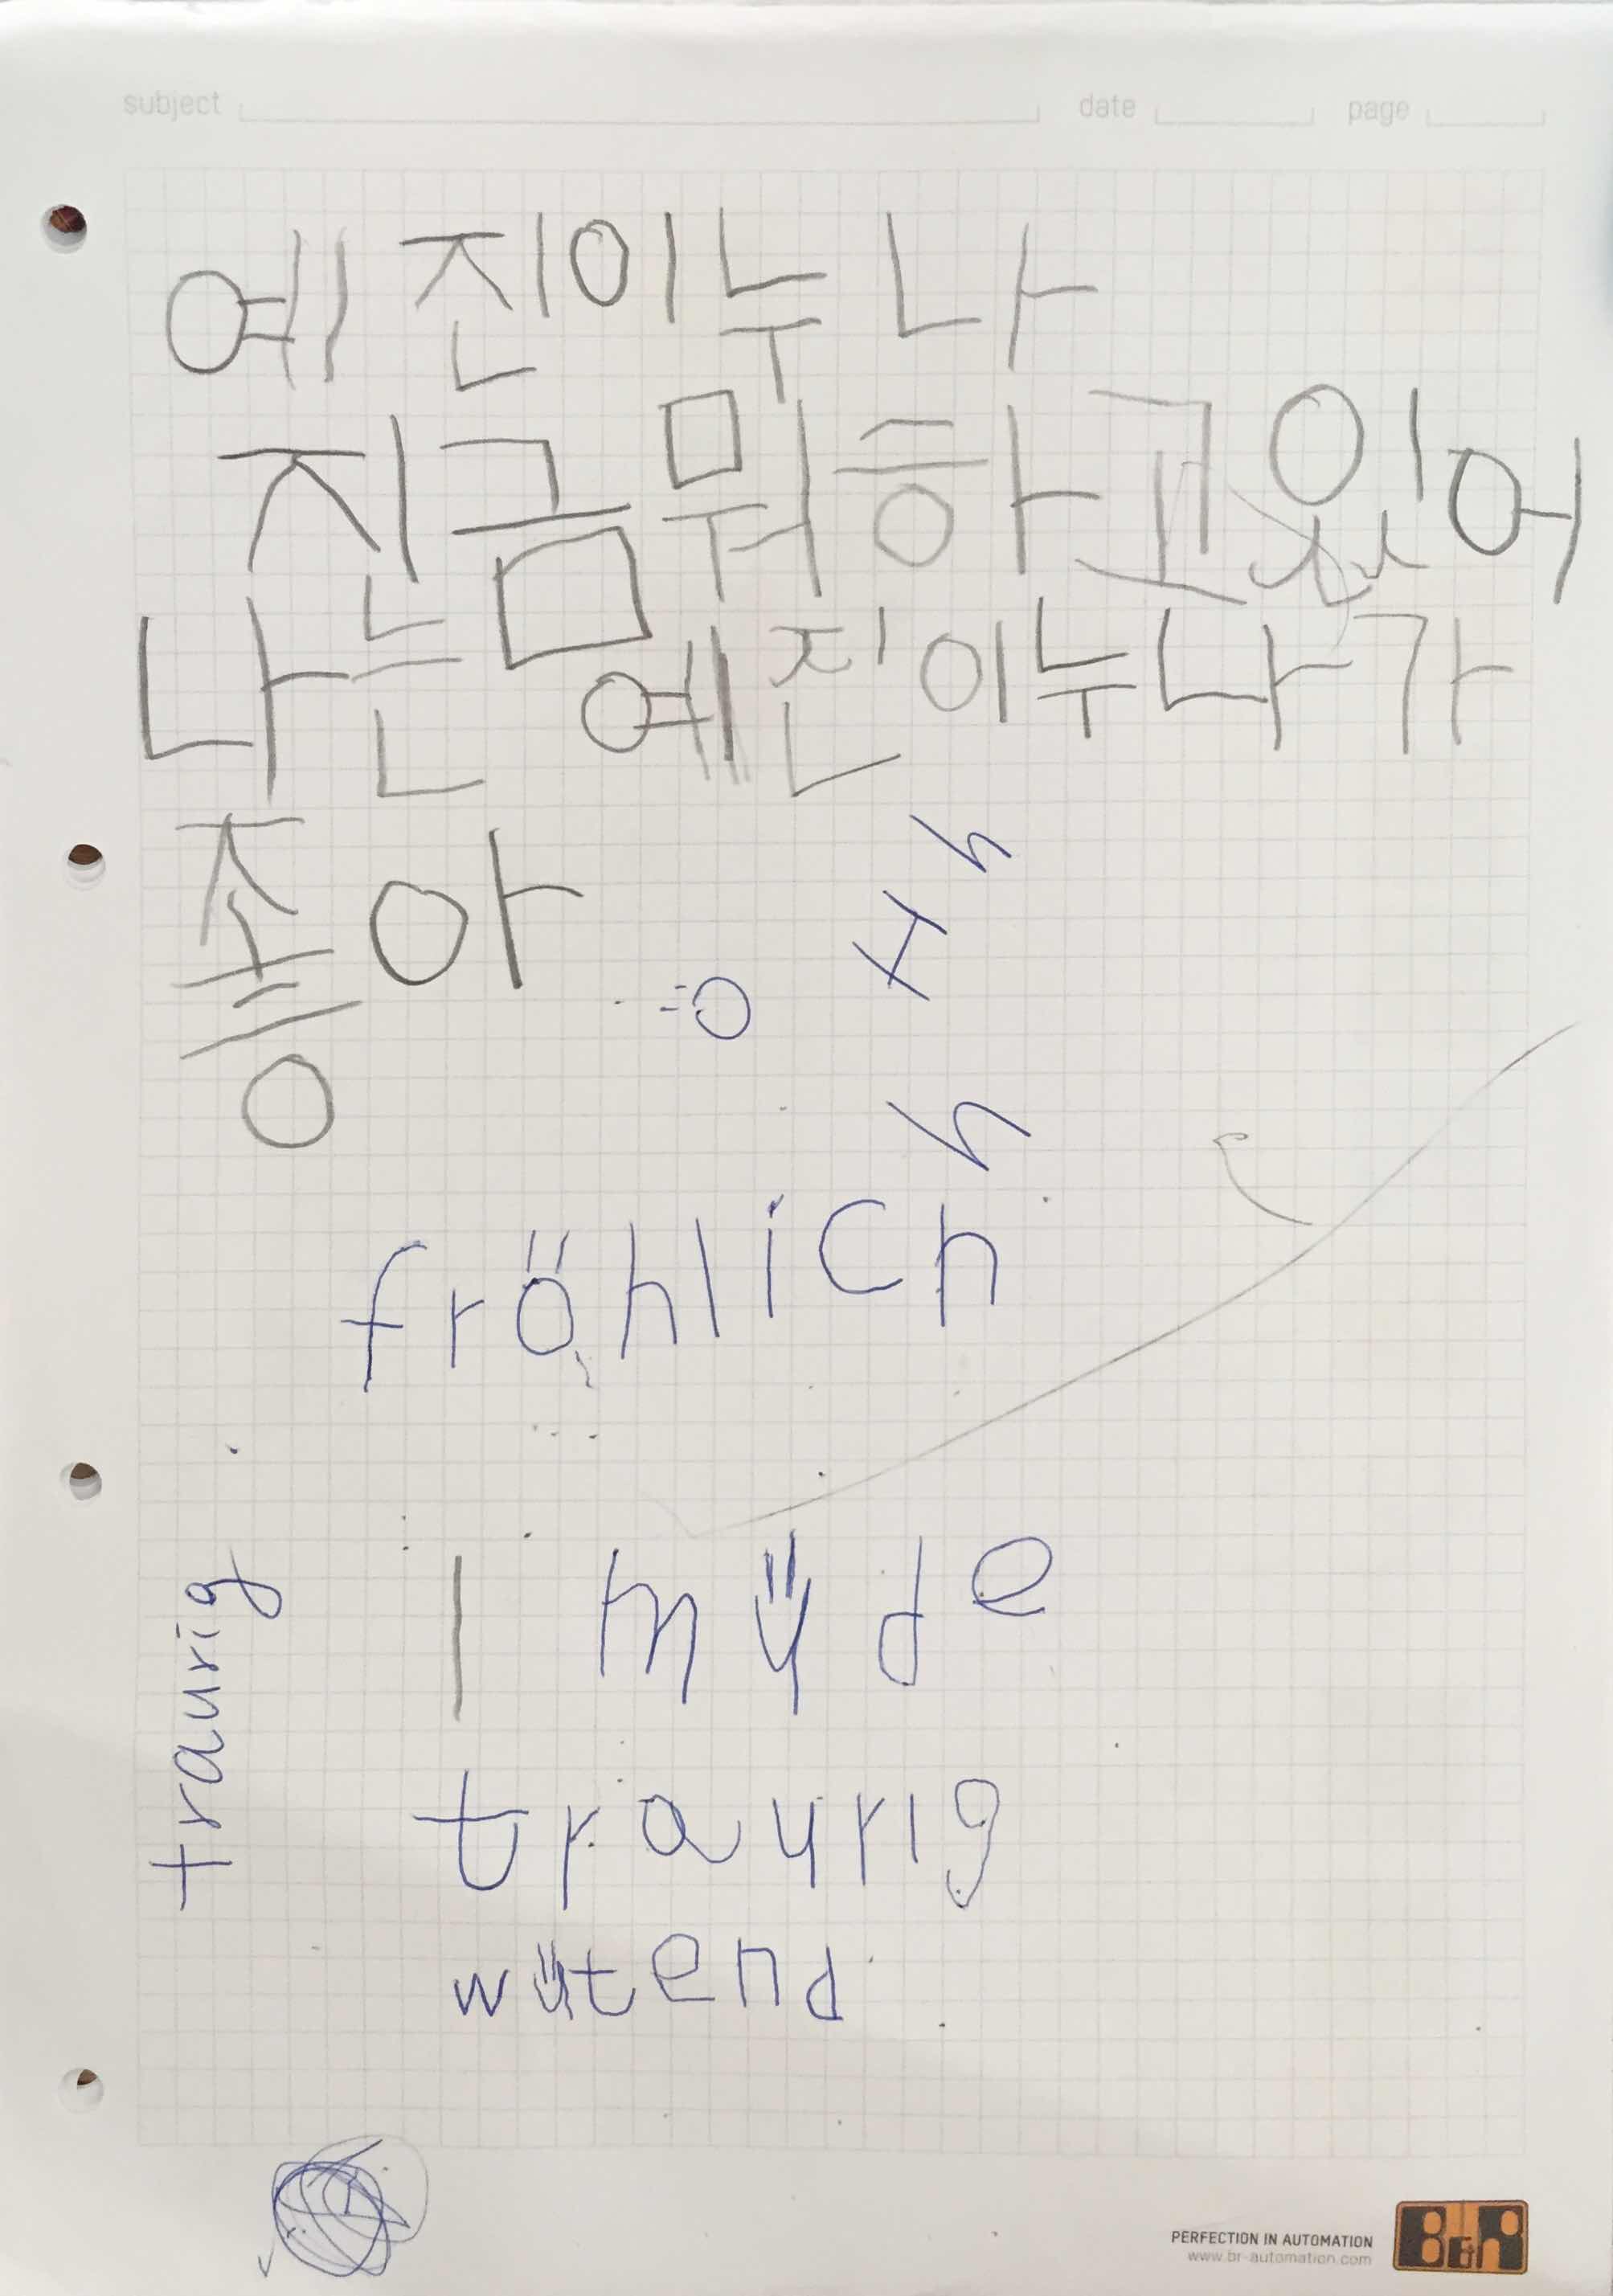 subject date page
예 진이누나
지금 뭐하고있어
나는 예진이누나가
죻아
h
H
ö
h
fröhlich
müde
traurig
traurig
wütend
PERFECTION IN AUTOMATION
www.br-automation.com
B&R